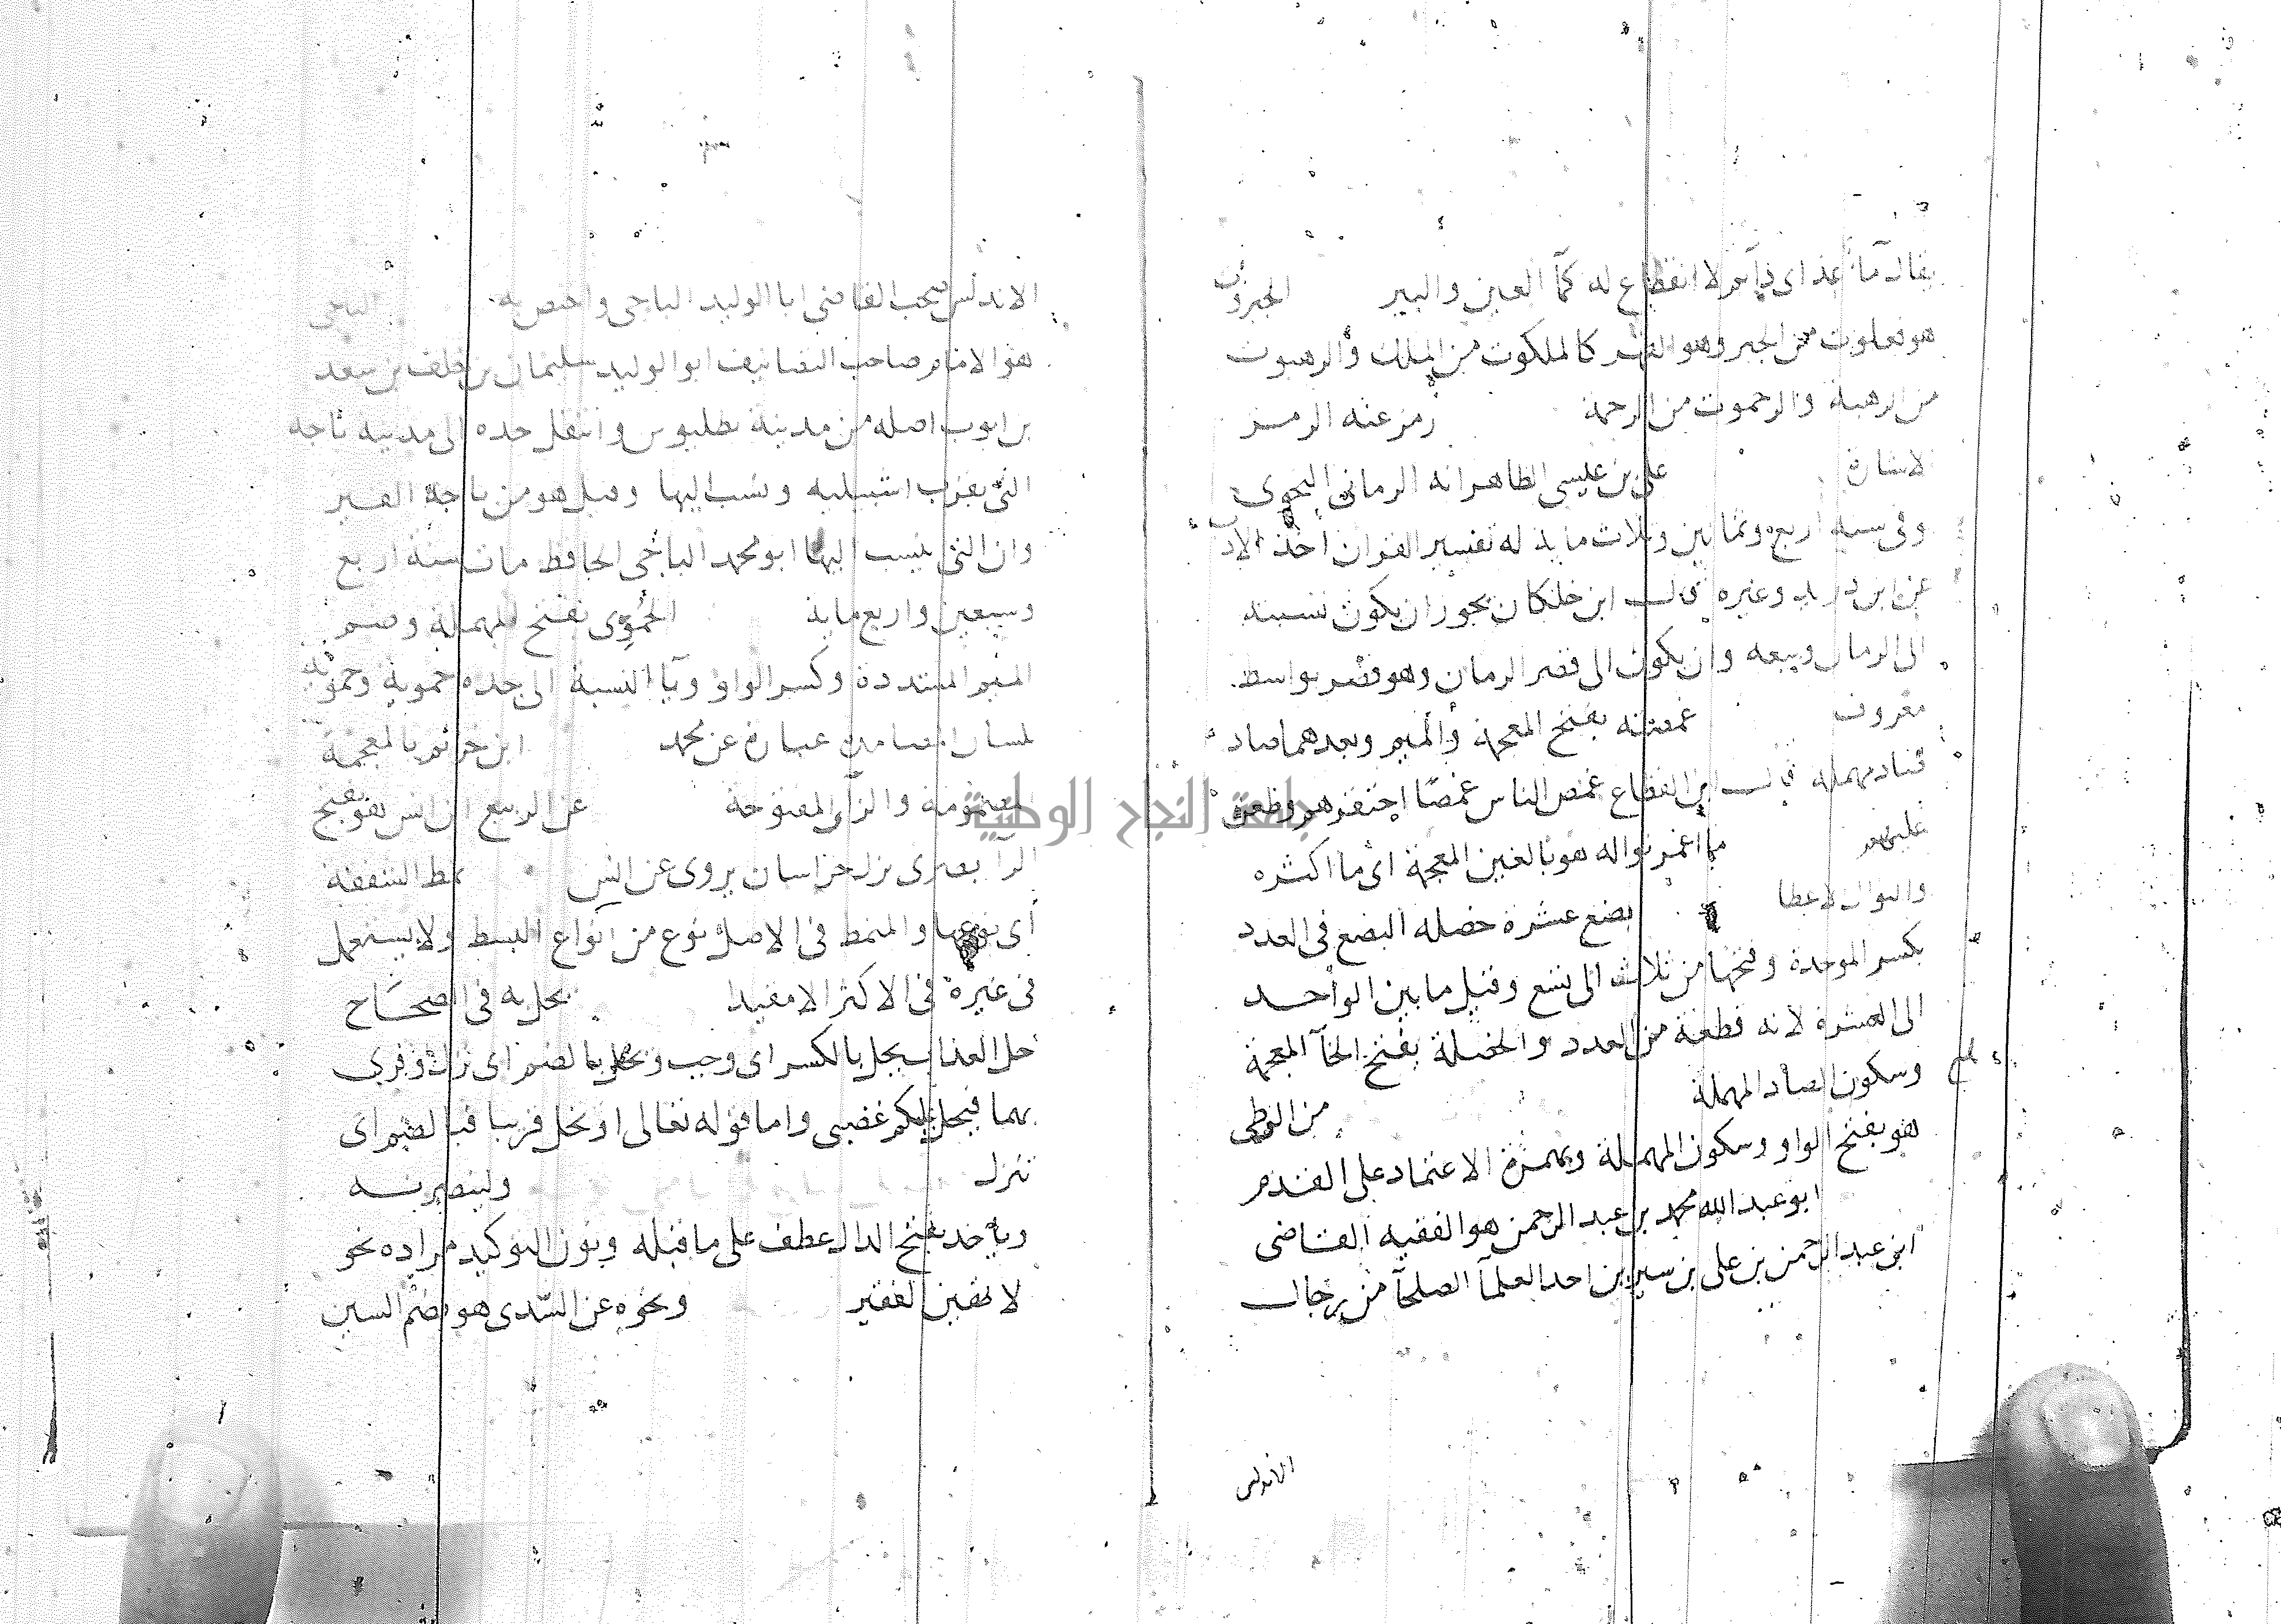 يقال مآ عد اى دآيم لا انقطاع له كمآ العين والبير الجبروت
هو فعلوت من الجبر وهو القهر كالملكوت من الملك والرهبوت
من الرهبة والرحموت من الرحمة رمز عنه الرمز
الاشارة على بن عيسى الظاهر انه الرمانى النحوى
وفى سنه اربع وثمانين وثلاث ماية له تفسير القران اخذ الادب
عن ابن دريد وغيره قال ابن خلكان يجوز ان يكون نسبته
الى الرمان وبيعه وان يكون الى قصر الرمان وهو قصر بواسط
معروف غمصته بفتح المعجمة والميم وبعدهما صاد
مهملة قال ابن القطاع غمص الناس غمصا احتقرهم وطعن
عليهم ما اغمر نواله هو بالغين المعجمة اى ما اكثره
والنوال لاعطا بضع عشرة خصله البضع فى العدد
بكسر الموحدة وفتحها من ثلاث الى تسع وقيل ما بين الواحد
الى العشرة لانه قطعة من العدد والخصلة بفتح الخآ المعجمة
وسكون الصاد المهملة من الوطى
هو بفتح الواو وسكون المهملة وبهمزة الاعتماد على القدم
ابو عبد الله محمد بن عبد الرحمن هو الفقيه القاضى
ابن عبد الرحمن بن على بن سيرين احد العلمآ الصلحآ من رجال
الاندلس
الاندلس صحب القاضى ابا الوليد الباجى واختص به الباجى
هو الامام صاحب التصانيف ابو الوليد سليمان بن خلف بن سعد
بن ايوب اصله من مدينة بطليوس وانتقل جده الى مدينة باجه
التى بقرب اشبيليه ونسب اليها وقيل هو من باجة القير
وان التى ينسب اليها ابو محمد الباجى الحافظ مات سنة اربع
وسبعين واربع ماية الحموى بفتح المهملة وضم
الميم المشددة وكسر الواو ويآ النسبة الى جده حموية وحموية
بلسان عبارة عن محمد ابن خزيم بالمعجمة
المضمومة والزآى المفتوحة عن الربيع بن انس هو بفتح
الرآ بصرى نزل خراسان يروى عن انس نمط الشفقة
أى نوعها والنمط فى الاصل نوع من انواع البسط ولا يستعمل
فى غيره فى الاكثر الا مقيدا يحل به فى الصحاح
حل العذاب يحل بالكسر اى وجب ويحل بالضم اى نزل وقرى
بهما فيحل عليكم غضبى واما قوله تعالى او تحل قريبا فبالضم اى
تنزل ولينصرنه
وبأخذ بفتح الدال عطف على ما قبله ونون التوكيد مراده نحو
لا تهين الفقير ونحوه عن السّدى هو بضم السين
جامعة النجاح الوطنية